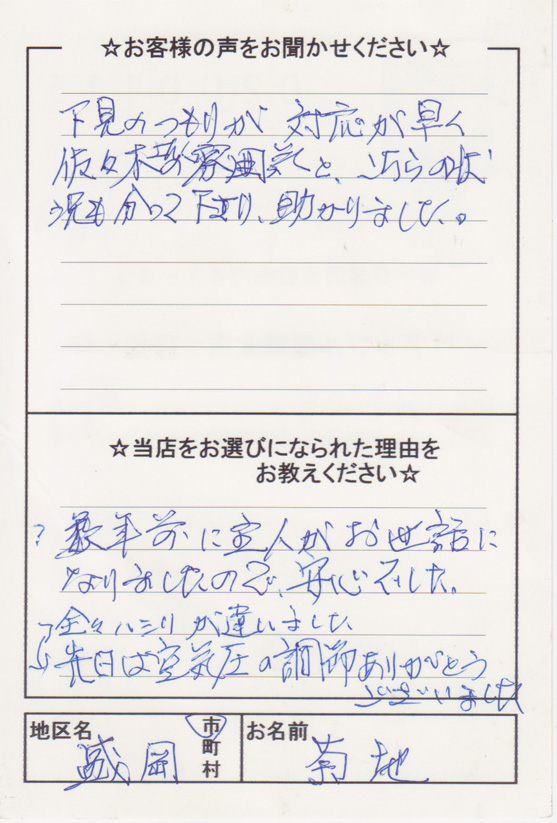 ☆お客様の声をお聞かせください☆
下見のつもりが 対応が早く
佐々木 雰囲気と、こちらの状
況も分って下さり、助かりました。
☆当店をお選びになられた理由を
お教えください☆
? 数年前に主人がお世話に
なりましたので、安心でした。
全々ハシリが違いました
先日は空気圧の調節ありがとう
ございました
地区名 盛岡 市町村 お名前 菊地